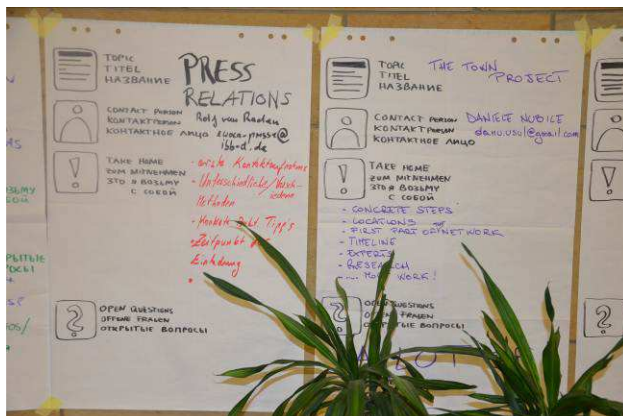 TOPIC
TITEL
НАЗВАНИЕ
PRESS
RELATIONS
CONTACT PERSON
KONTAKTPERSON
КОНТАКТНОЕ ЛИЦО
Rolf van Raden
@
isb-d.de
TAKE HOME
ZUM MITNEHMEN
ЭТО Я ВОЗЬМУ
С СОБОЙ
- erste Kontaktaufnahme
- Unterschiedliche
Methoden
Tipp's
- Zeitpunkt
Einladung
OPEN QUESTIONS
OFFENE FRAGEN
ОТКРЫТЫЕ ВОПРОСЫ
TOPIC
TITEL
НАЗВАНИЕ
THE TOWN
PROJECT
CONTACT PERSON
KONTAKTPERSON
КОНТАКТНОЕ ЛИЦО
DANIELE NUBILE
@gmail.com
TAKE HOME
ZUM MITNEHMEN
ЭТО Я ВОЗЬМУ
С СОБОЙ
- CONCRETE STEPS
- LOCATIONS
- FIRST PART OF NETWORK
- TIMELINE
- EXPERTS
- RESEARCH
WORK!
OPEN QUESTIONS
FRAGEN
ОТКРЫТЫЕ ВОПРОСЫ